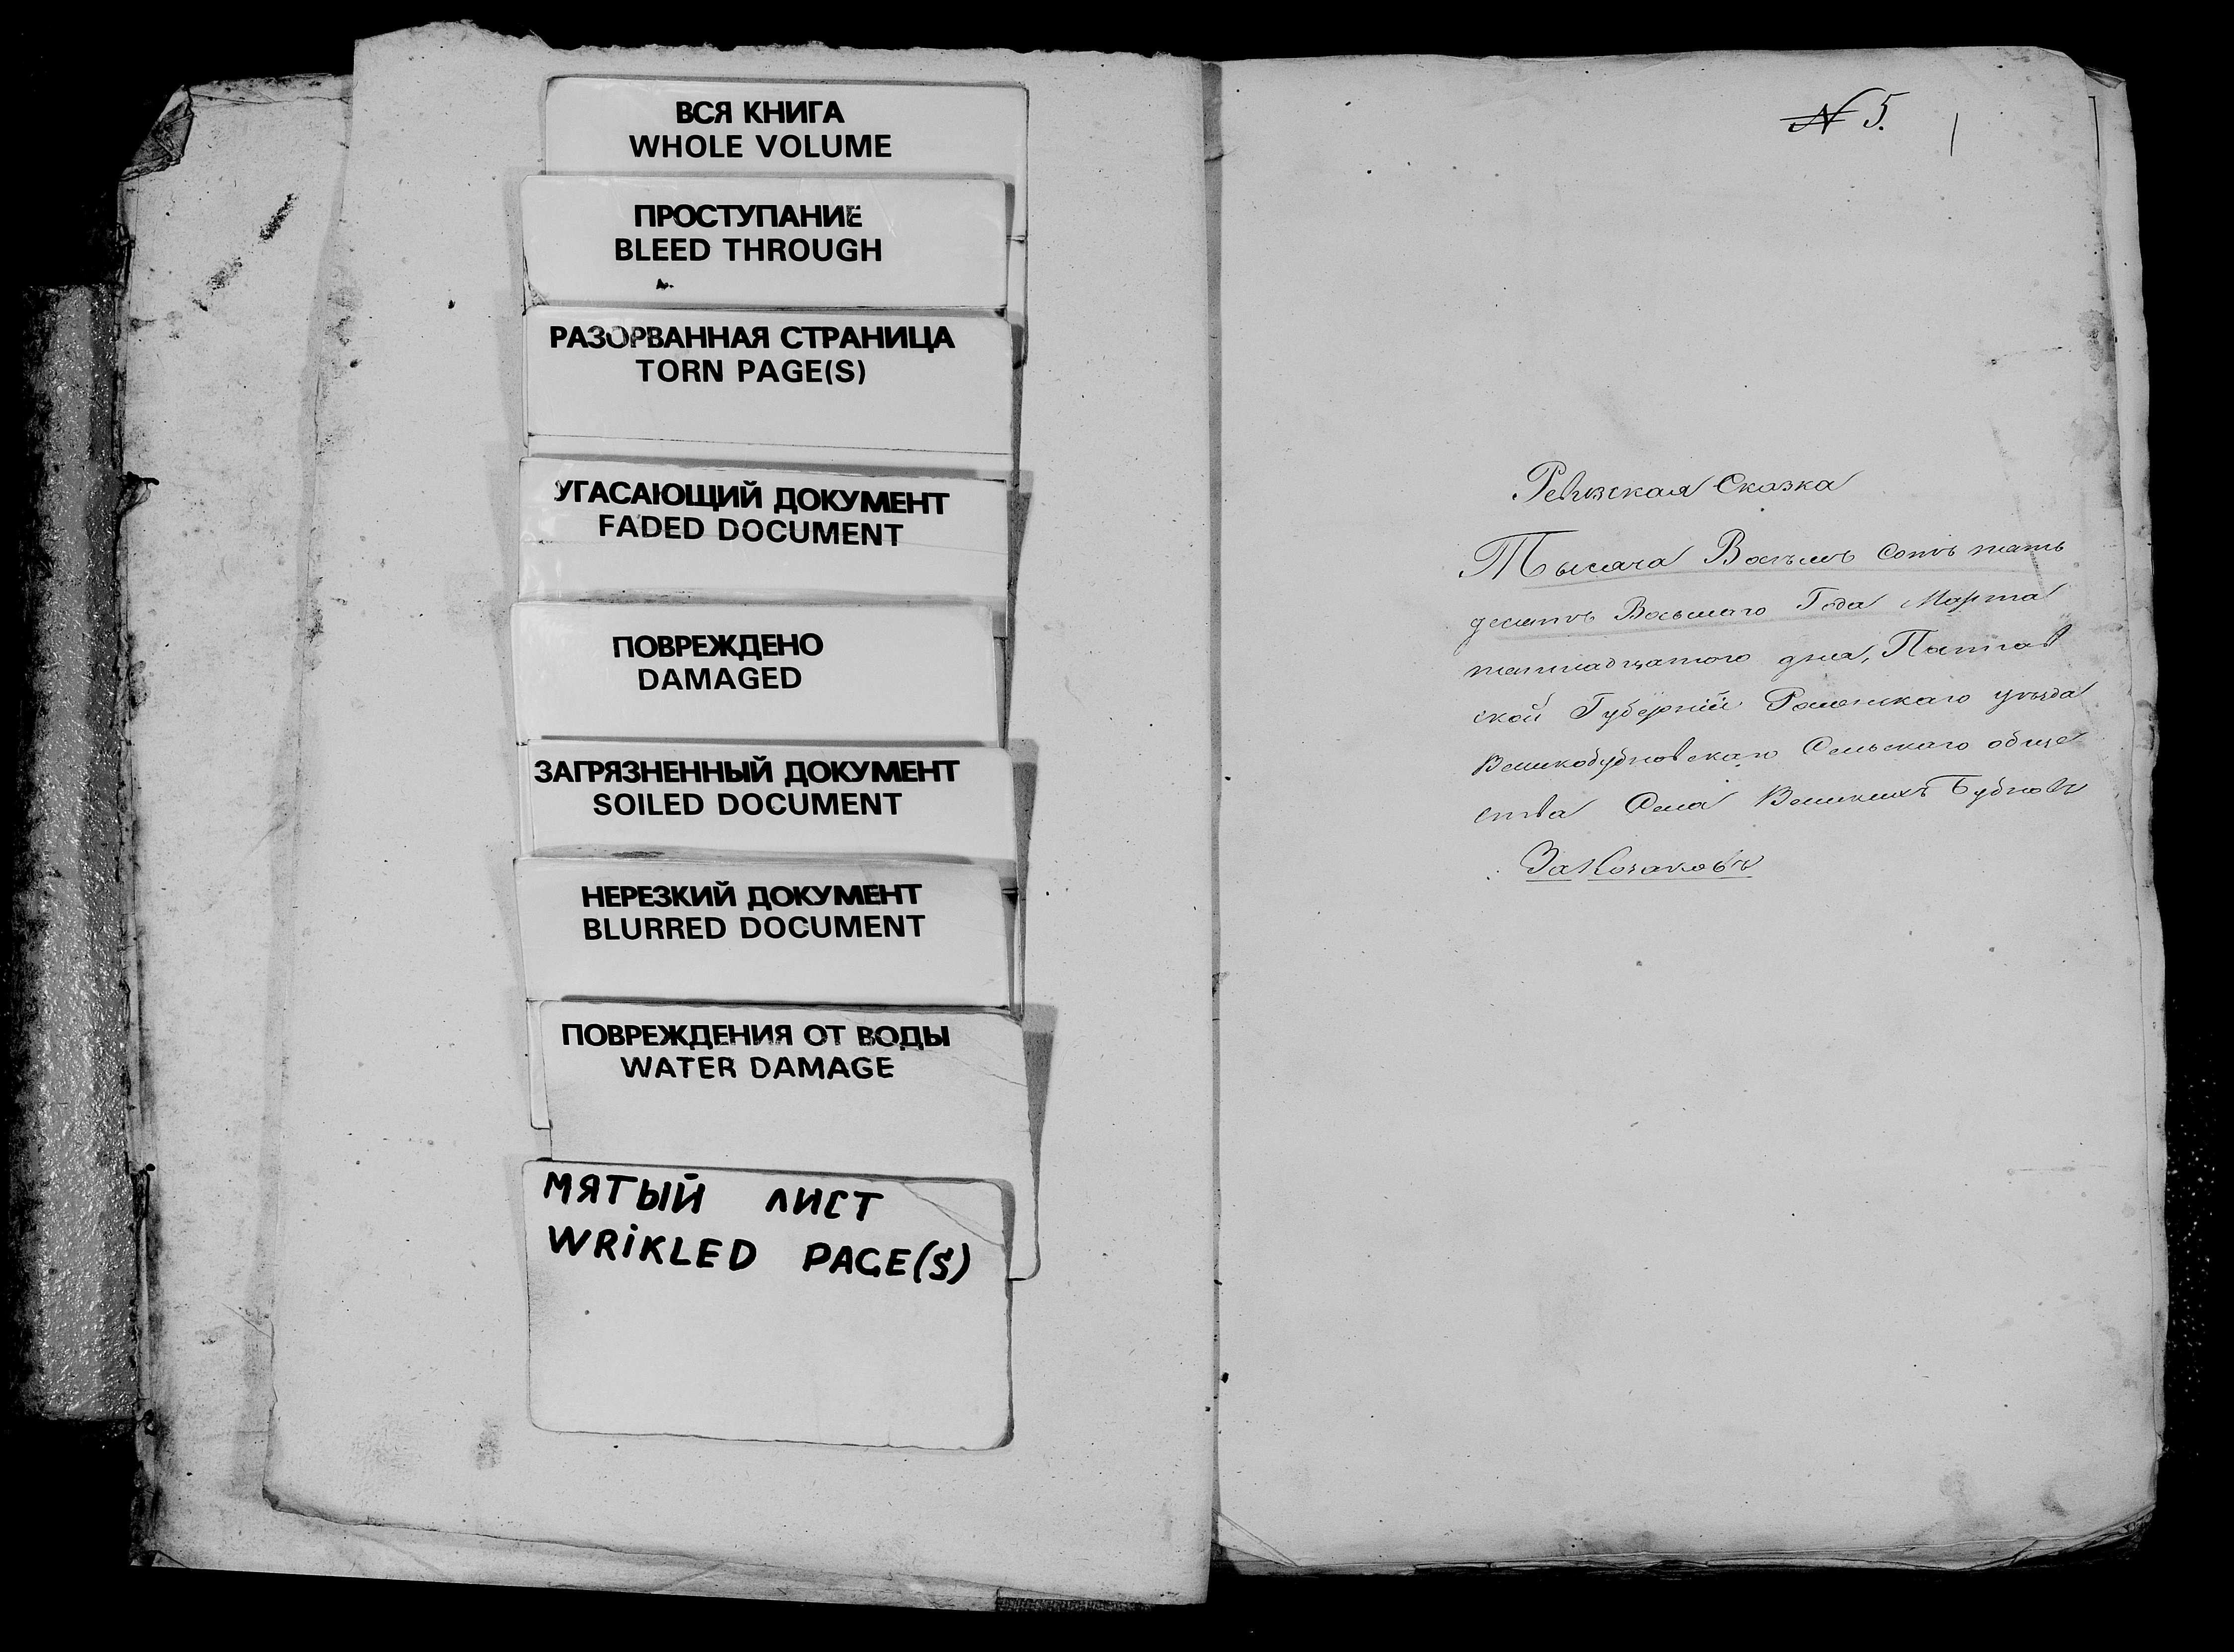 ВСЯ КНИГА
WHOLE VOLUME
ПРОСТУПАНИЕ
BLEED THROUGH
РАЗОРВАННАЯ СТРАНИЦА
TORN PAGE(S)
УГАСАЮЩИЙ ДОКУМЕНТ
FADED DOCUMENT
ПОВРЕЖДЕНО
DAMAGED
ЗАГРЯЗНЕННЫЙ ДОКУМЕНТ
SOILED DOCUMENT
НЕРЕЗКИЙ ДОКУМЕНТ
BLURRED DOCUMENT
ПОВРЕЖДЕНИЯ ОТ ВОДЫ
WATER DAMAGE
МЯТЫЙ ЛИСТ
WRIKLED PAGE(S)
№ 5.
1
Ревизская Сказка
Тысяча Восьмъ Сотъ пять
десятъ Восьмаго Года Марта
пятнадцатого дня, Полтав
ской Губерніи Роменскаго уѣзда
Великобубновскаго Сельскаго обще
ства Села Великихъ Бубновъ
За Козаковъ